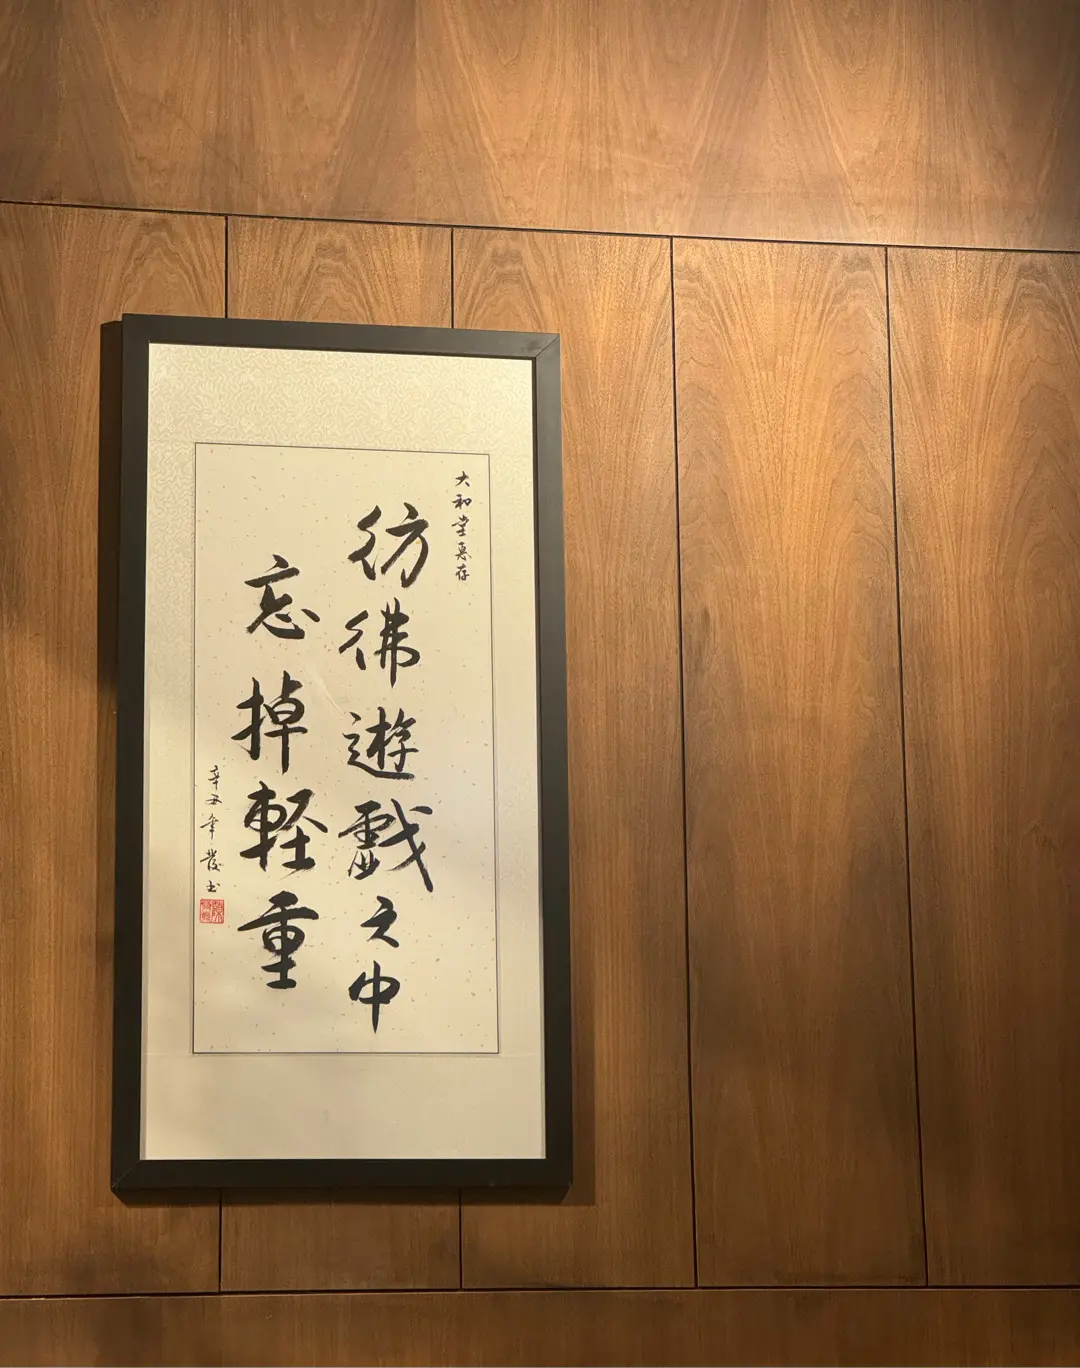 大和堂惠存
彷彿遊戲之中
忘掉輕重
辛丑年發书